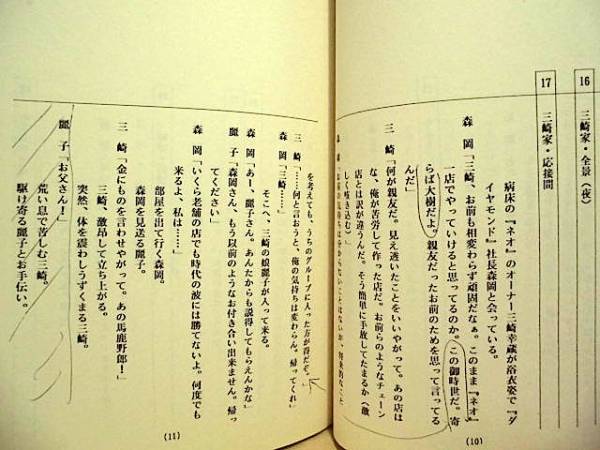 16　三崎家・全景（夜）
17　三崎家・応接間
病床の『ネオ』のオーナー三崎幸蔵が浴衣姿で『ダ
イヤモンド』社長森岡と会っている。
森　岡「三崎、お前も相変わらず頑固だなぁ。このまま『ネオ』
一店でやっていけると思ってるのか。この御時世だ。寄
らば大樹だよ。親友だったお前のためを思って言ってる
んだ」
三　崎「何が親友だ。見え透いたことをいいやがって。あの店は
な、俺が苦労して作った店だ。お前らのようなチェーン
店とは訳が違うんだ。そう簡単に手放してたまるか（激
しく咳き込む）」
を考えても、うちのグループに入った方が得だぞ。」
三　崎「……何と言おうと、俺の気持ちは変わらん。帰ってくれ」
森　岡「三崎……」
そこへ、三崎の娘麗子が入って来る。
森　岡「あー、麗子さん。あんたからも説得してもらえんかな」
麗　子「森岡さん、もう以前のようなお付き合い出来ません。帰っ
てください」
森　岡「いくら老舗の店でも時代の波には勝てないよ。何度でも
来るよ、私は……」
部屋を出て行く森岡。
森岡を見送る麗子。
三　崎「金にものを言わせやがって。あの馬鹿野郎！」
三崎、激昂して立ち上がる。
突然、体を震わしうずくまる三崎。
麗　子「お父さん！」
荒い息で苦しむ三崎。
駆け寄る麗子とお手伝い。
(10)
(11)